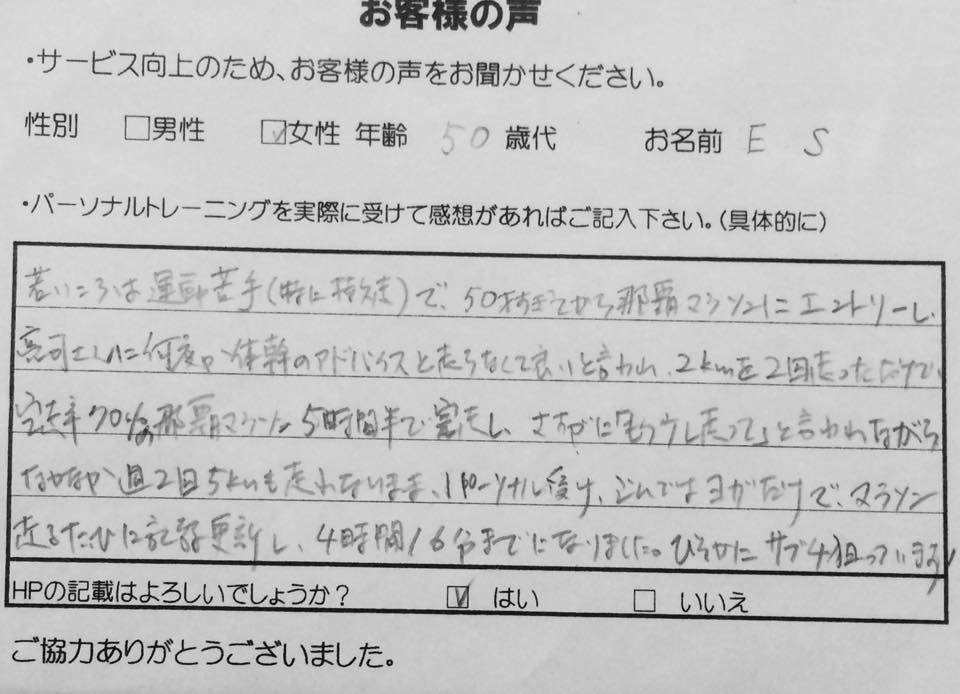 お客様の声
・サービス向上のため、お客様の声をお聞かせください。
性別 □男性 ☑女性 年齢 50 歳代 お名前 E S
・パーソナルトレーニングを実際に受けて感想があればご記入下さい。(具体的に)
若いころは運動苦手(特に持久走)で、50才すぎてから那覇マラソンにエントリーし、
高司さんに何度か体幹のアドバイスと走らなくて良いと言われ、2kmを2回走っただけで、
完走率70%の那覇マラソン5時間半で完走し、さすがに「もう少し走って」と言われながら
なかなか週2回5kmも走れないまま、パーソナル受け、ジムではヨガだけで、マラソン
走るたびに記録更新し、4時間16分までになりました。ひそかにサブ4狙っています!
HPの記載はよろしいでしょうか? ☑ はい □ いいえ
ご協力ありがとうございました。